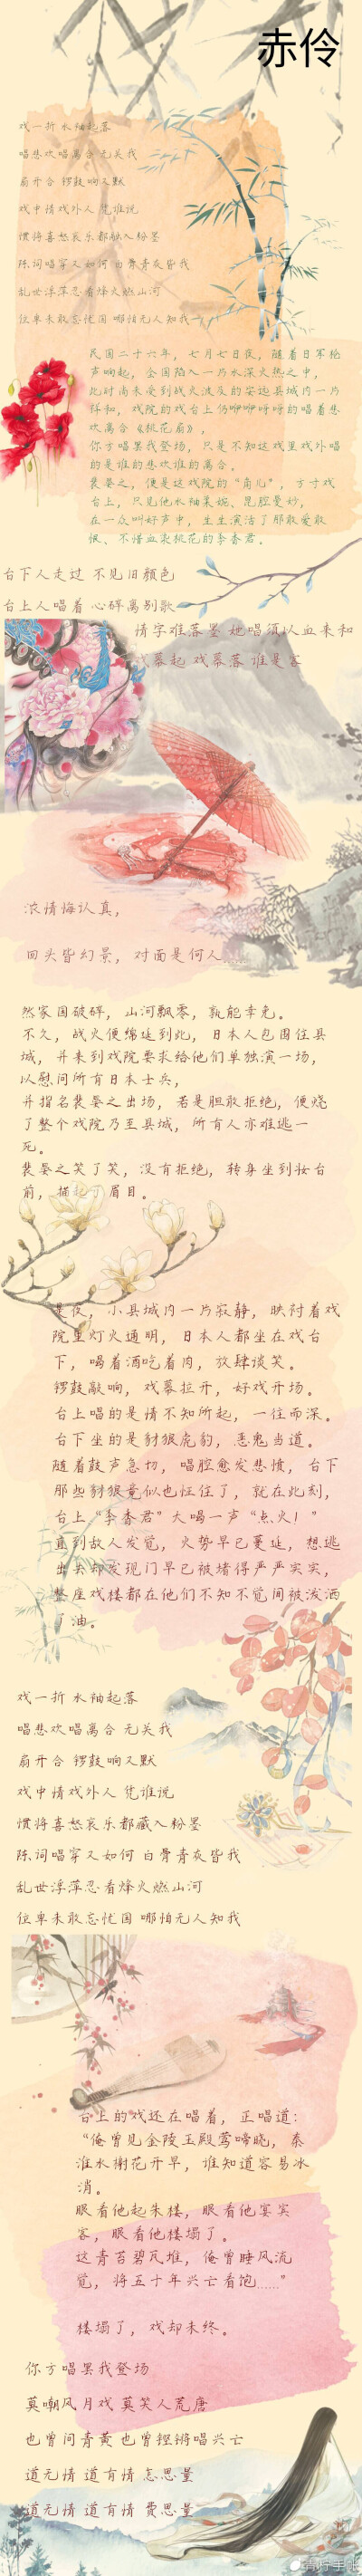 赤伶
戏一折 水袖起落
唱悲欢唱离合 无关我
扇开合 锣鼓响又默
戏中情戏外人 凭谁说
惯将喜怒哀乐都融入粉墨
陈词唱穿又如何 白骨青灰皆我
乱世浮萍忍看烽火燃山河
位卑未敢忘忧国 哪怕无人知我
民国二十六年，七月七日夜，随着日军枪
声响起，全国陷入一片水深火热之中，
此时尚未受到战火波及的安远县城内一片
祥和，戏院的戏台上仍咿咿呀呀的唱着悲
欢离合《桃花扇》，
你方唱罢我登场，只是不知这戏里戏外唱
的是谁的悲欢谁的离合。
裴晏之，便是这戏院的“角儿”，方寸戏
台上，只见他水袖柔婉、昆腔曼妙，
在一众叫好声中，生生演活了那敢爱敢
恨、不惜血染桃花的李香君。
台下人走过 不见旧颜色
台上人唱着 心碎离别歌
情字难落墨 她唱须以血来和
戏幕起 戏幕落 谁是客
浓情悔认真，
回头皆幻景，对面是何人……
然家国破碎，山河飘零，孰能幸免。
不久，战火便绵延到此，日本人包围住县
城，并来到戏院要求给他们单独演一场，
以慰问所有日本士兵，
并指名裴晏之出场，若是胆敢拒绝，便烧
了整个戏院乃至县城，所有人亦难逃一
死。
裴晏之笑了笑，没有拒绝，转身坐到妆台
前，描起了眉目。
是夜，小县城内一片寂静，映衬着戏
院里灯火通明，日本人都坐在戏台
下，喝着酒吃着肉，放肆谈笑。
锣鼓敲响，戏幕拉开，好戏开场。
台上唱的是情不知所起，一往而深。
台下坐的是豺狼虎豹，恶鬼当道。
随着鼓声急切，唱腔愈发悲愤，台下
那些豺狼竟似也怔住了，就在此刻，
台上“李香君”大喝一声“点火！”
直到敌人发觉，火势早已蔓延，想逃
出去却发现门早已被堵得严严实实，
整座戏楼都在他们不知不觉间被泼洒
了油。
戏一折 水袖起落
唱悲欢唱离合 无关我
扇开合 锣鼓响又默
戏中情戏外人 凭谁说
惯将喜怒哀乐都藏入粉墨
陈词唱穿又如何 白骨青灰皆我
乱世浮萍忍看烽火燃山河
位卑未敢忘忧国 哪怕无人知我
台上的戏还在唱着，正唱道：
“俺曾见金陵玉殿莺啼晓，秦
淮水榭花开早，谁知道容易冰
消。
眼看他起朱楼，眼看他宴宾
客，眼看他楼塌了。
这青苔碧瓦堆，俺曾睡风流
觉，将五十年兴亡看饱……”
楼塌了，戏却未终。
你方唱罢我登场
莫嘲风月戏 莫笑人荒唐
也曾问青黄 也曾铿锵唱兴亡
道无情 道有情 怎思量
道无情 道有情 费思量